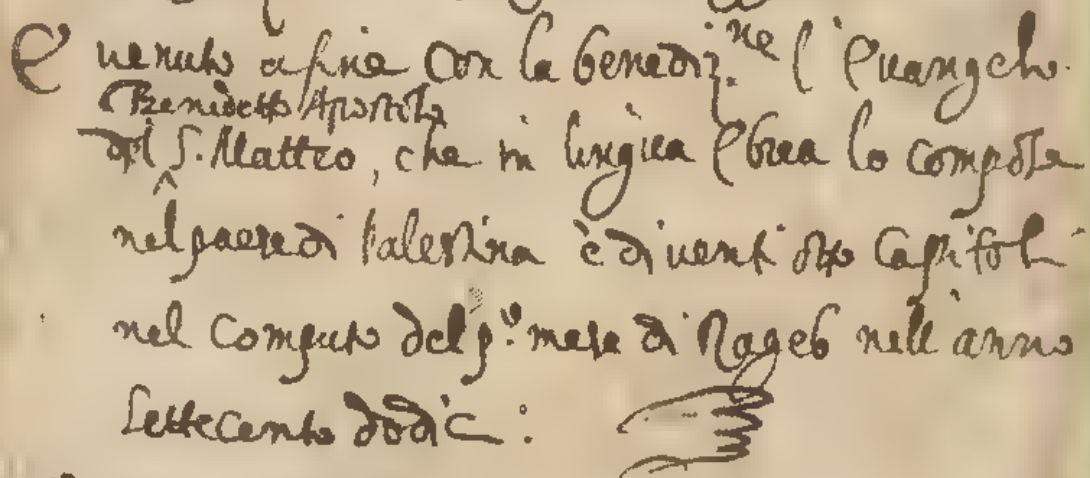 E venuto a fine con la benediz.ne l'Evangelo
Benedetto Apostolo
del S. Matteo, che in lingua Ebrea lo compose
nel paese di Palestina è di venti otto Capitoli
nel Computo del p.o mese di Rageb nell'anno
settecento dodici: